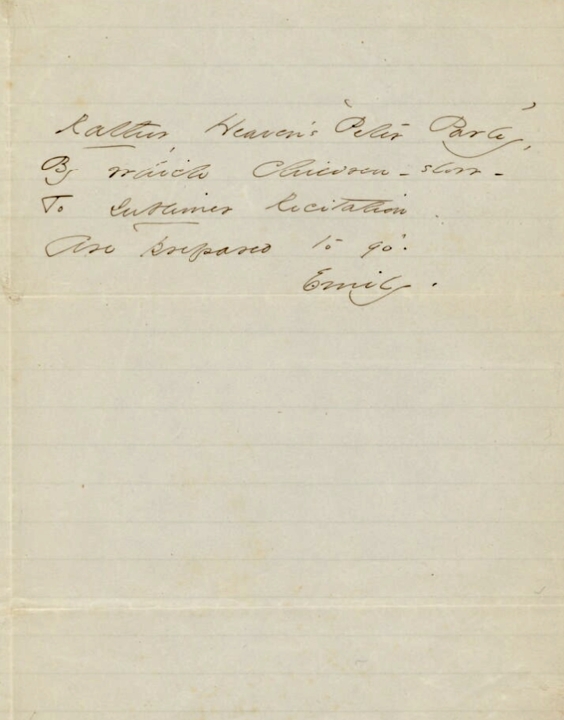 Rather, Heaven's "Peter Parley",
By which Children - slow -
To sublimer Recitation
Are prepared to go.
Emily.